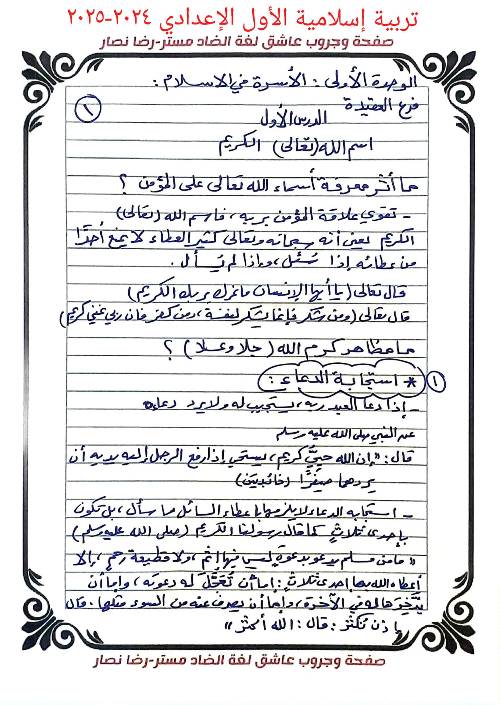 تربية إسلامية الأول الإعدادي ٢٠٢٤-٢٠٢٥
صفحة وجروب عاشق لغة الضاد مستر-رضا نصار
الوحدة الأولى: الأسرة في الإسلام:
فرع العقيدة
١
الدرس الأول
اسم الله (تعالى) الكريم
ما أثر معرفة أسماء الله تعالى على المؤمن؟
- تقوى علاقة المؤمن بربه، فاسم الله (تعالى)
الكريم يعني أنه سبحانه وتعالى كثير العطاء لا يمنع أحدًا
من عطائه إذا سُئل، وإذا لم يُسأل.
قال تعالى (يا أيها الإنسان ما غرك بربك الكريم)
قال تعالى (ومن شكر فإنما يشكر لنفسه، ومن كفر فإن ربي غني كريم)
ما مظاهر كرم الله (جلا وعلا)؟
١ * استجابة الدعاء:
- إذا دعا العبد ربه، يستجيب له ولا يرد دعاءه
عن النبي صلى الله عليه وسلم
قال: "إن الله حييٌّ كريم، يستحي إذا رفع الرجل إليه يديه أن
يردهما صِفْرًا (خائبتين)
- استجابه الدعاء لا يلزم إعطاء السائل ما سأل، بل تكون
بإحدى ثلاثٍ كما قال رسولنا الكريم (صلى الله عليه وسلم)
"ما من مسلم يدعو بدعوة ليس فيها إثم، ولا قطيعة رحم، إلا
أعطاه الله بها إحدى ثلاثٍ: إما أن تُعَجَّل له دعوته، وإما أن
يدَّخرها له في الآخرة، وإما أن يصرف عنه من السوء مثلها. قال
إذن نكثر: قال: الله أكثر"
صفحة وجروب عاشق لغة الضاد مستر-رضا نصار